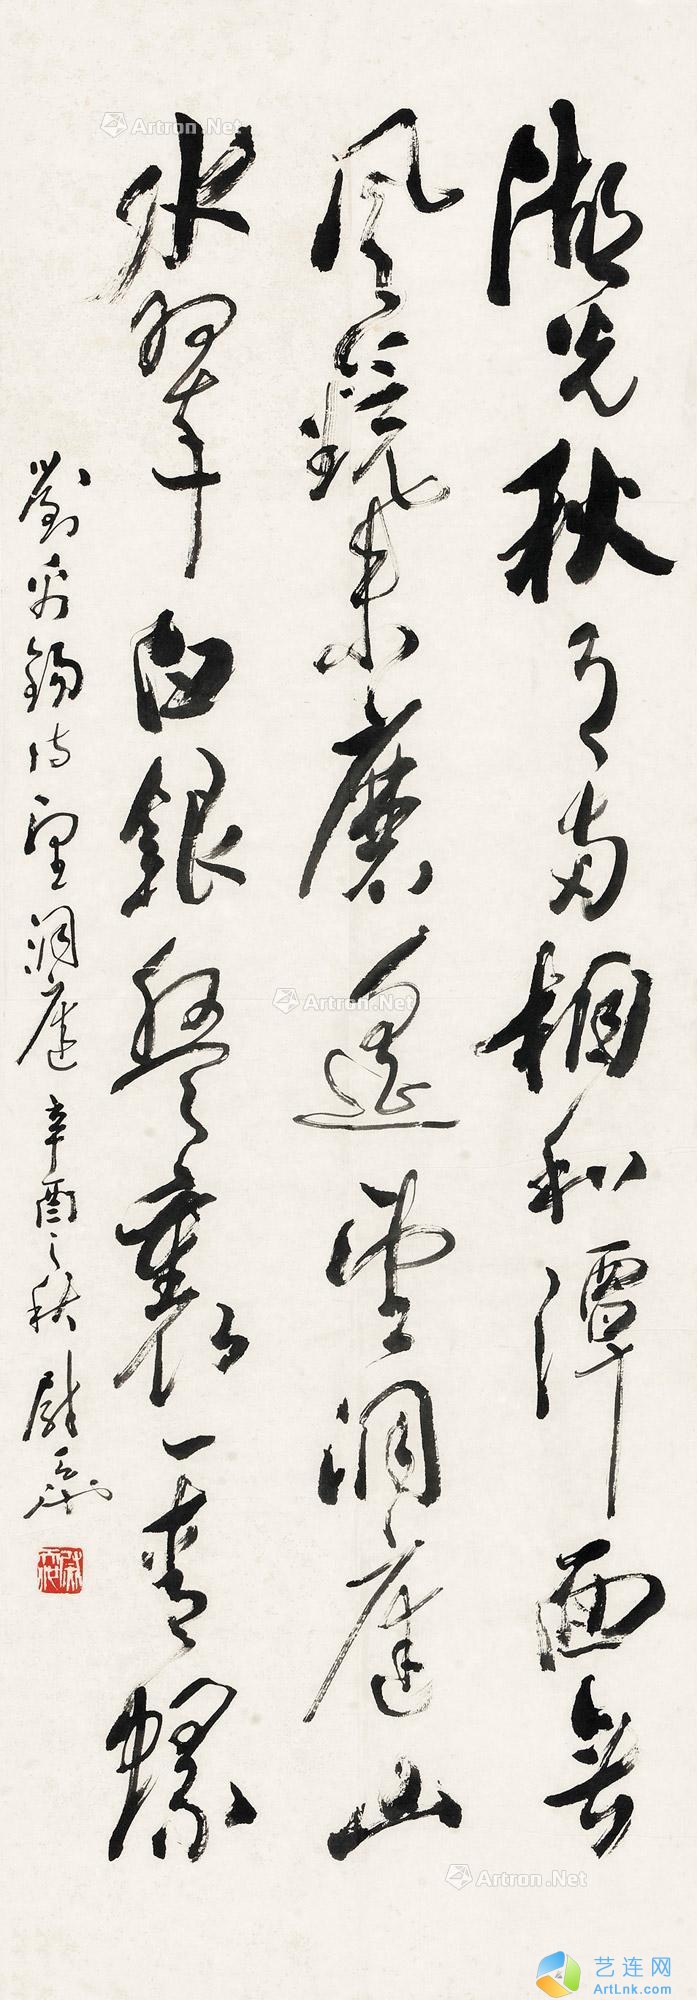 湖光秋月兩相和潭面無
風鏡未磨遙望洞庭山
水翠白銀盤裏一青螺
劉禹錫詩望洞庭 辛酉之秋 尉天池
Artron.Net
Artron.Net
Artron.Net
艺连网
ArtLnk.com